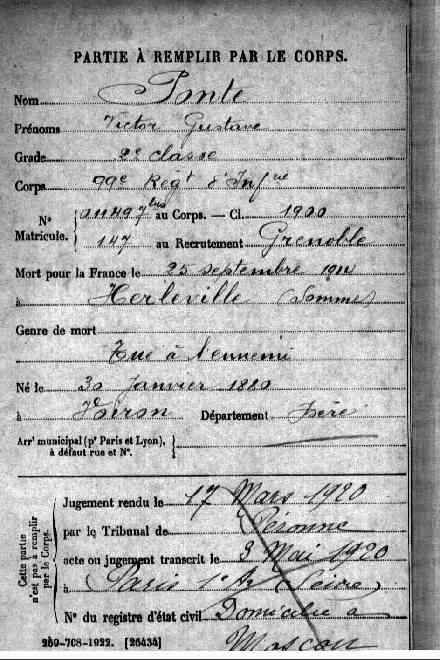 PARTIE À REMPLIR PAR LE CORPS.
Nom Ponte
Prénoms Victor Gustave
Grade 2e classe
Corps 99e Régt d'Infrie
Nº Matricule. 01149 7bis au Corps. — Cl. 1900
147 au Recrutement Grenoble
Mort pour la France le 25 septembre 1914
à Herleville (Somme)
Genre de mort
Tué à l'ennemi
Né le 30 Janvier 1880
à Voiron Département Isère
Arrt municipal (pr Paris et Lyon), à défaut rue et Nº.
Cette partie n'est pas à remplir par le Corps.
Jugement rendu le 17 Mars 1920
par le Tribunal de Péronne
acte ou jugement transcrit le 3 Mai 1920
à Paris 1er Ar (Seine)
Nº du registre d'état civil Domicilié à
Moscou
269-708-1922. [26434]